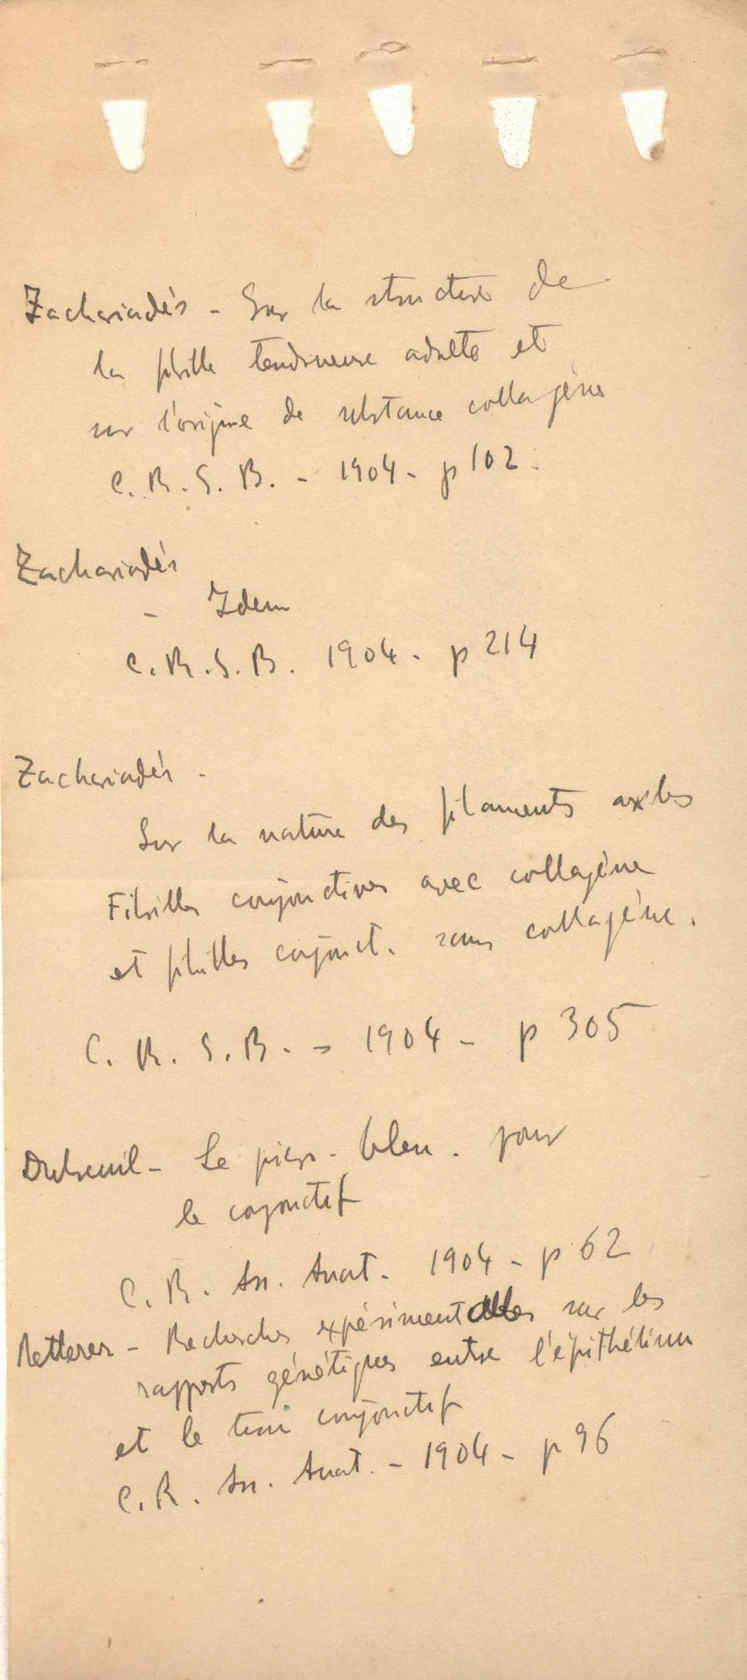 Zachariadès - Sur la structure de
la fibrille tendineuse adulte et
sur l'origine de substance collagène
C. R. S. B. - 1904 - p 102.
Zachariadès
- Idem
C. R. S. B. 1904 - p 214
Zachariadès -
Sur la nature des filaments axiles
Fibrilles conjonctives avec collagène
et fibrilles conjonct. sans collagène.
C. R. S. B. - 1904 - p 305
Dubreuil - Le picro - bleu . pour
le conjonctif
C. R. Ass. Anat. 1904 - p 62
Retterer - Recherches expérimentales sur les
rapports génétiques entre l'épithélium
et le tissu conjonctif
C. R. Ass. Anat. - 1904 - p 96